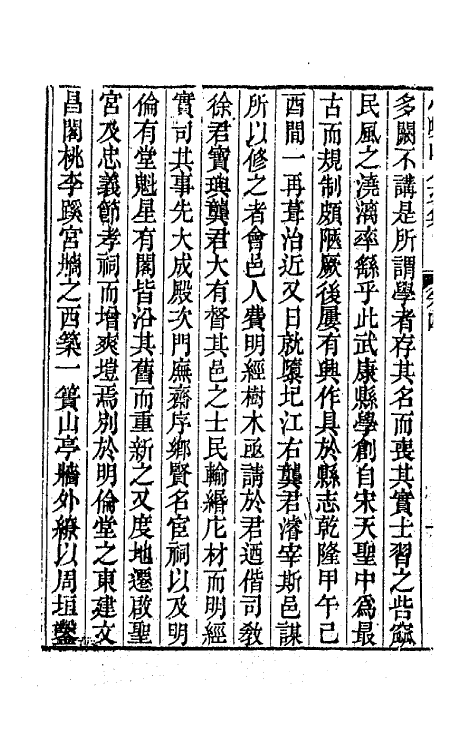 多闕不講是所謂學者存其名而喪其實士習之呰窳
民風之澆漓率繇乎此武康縣學創自宋天聖中爲最
古而規制頗陋厥後屢有興作具於縣志乾隆甲午己
酉間一再葺治近又日就隳圮江右龔君濬宰斯邑謀
所以修之者會邑人費明經樹木亟請於君迺偕司教
徐君寶璵龔君大有督其邑之士民輸緡庀材而明經
實司其事先大成殿次門廡齋序鄉賢名宦祠以及明
倫有堂魁星有閣皆沿其舊而重新之又度地遷啟聖
宮及忠義節孝祠而增爽塏焉別於明倫堂之東建文
昌閣桃李蹊宮牆之西築一簣山亭牆外繚以周垣鑿